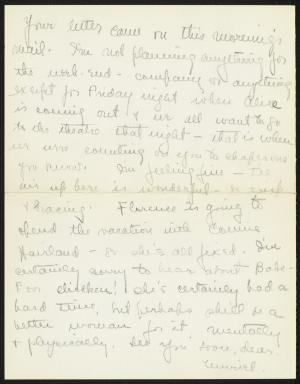 Your letter came on this morning's
mail. I'm not planning anything for
the week-end - company or anything
except for Friday night when Alice
is coming out & we all want to go
to the theatre that night - that is when
we were counting on you to chaperone
you know. I'm feeling fine - the
air up here is wonderful - so
& bracing. Florence is going to
spend the vacation with Connie
- so she's all fixed. I'm
certainly sorry to hear about Babe -
Poor chicken! She's certainly had a
hard time, but perhaps she'll be a
better woman for it mentally
& physically. See you soon, dear.
Muriel.